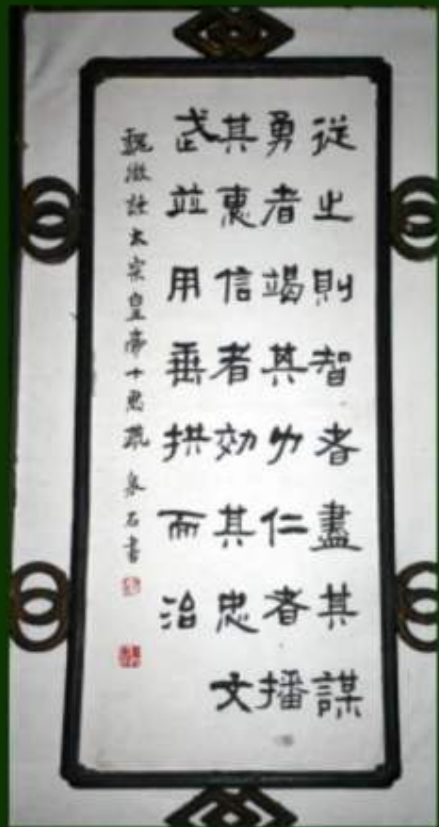 從之則智者盡其謀
勇者竭其力仁者播
其惠信者効其忠文
武並用垂拱而治
魏徵諫太宗皇帝十思疏 泉石書